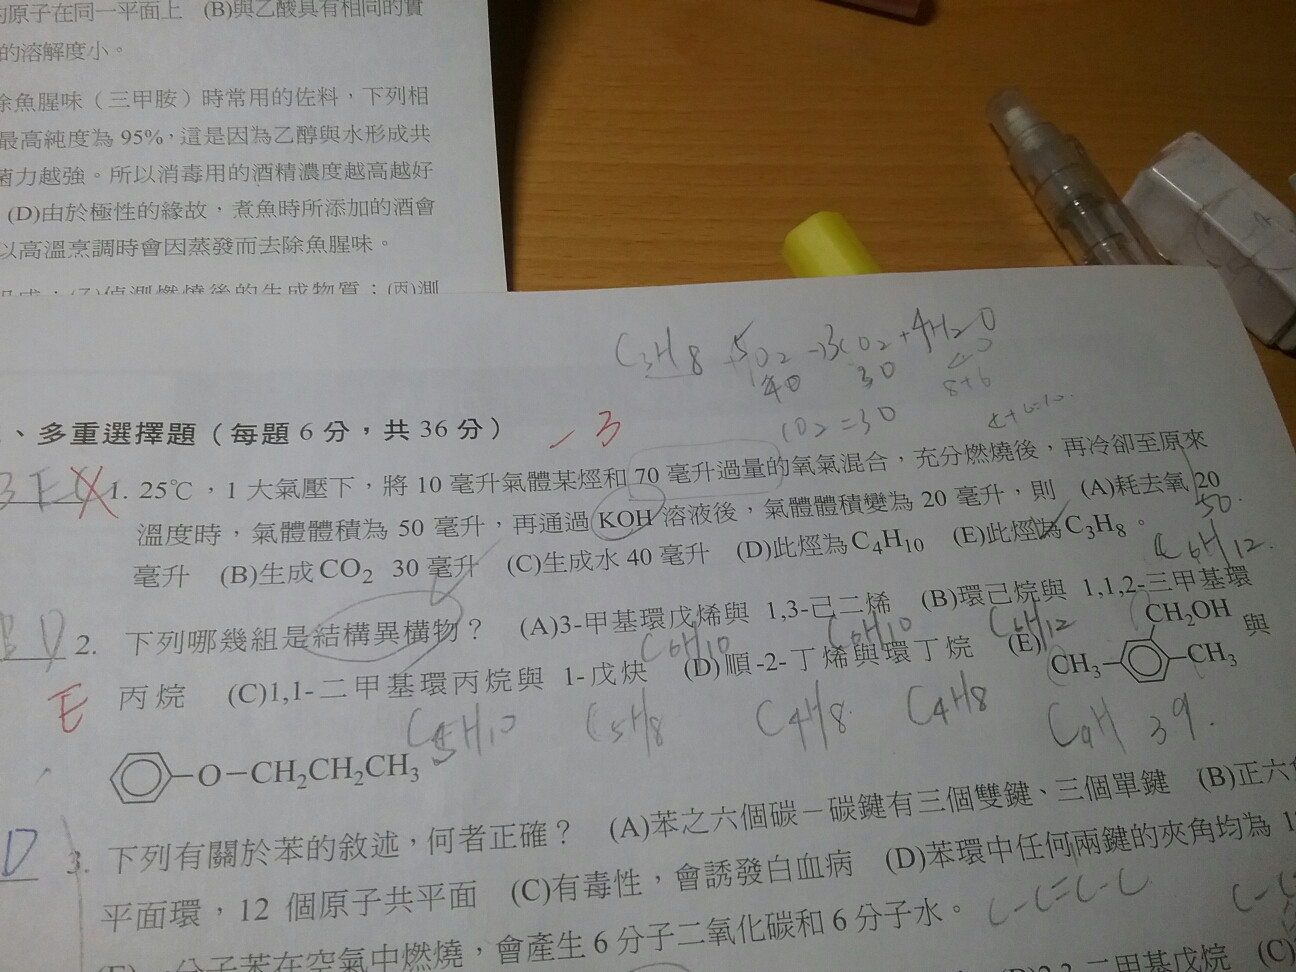 的原子在同一平面上 (B)與乙酸具有相同的實
的溶解度小。
除魚腥味（三甲胺）時常用的佐料，下列相
最高純度為 95%，這是因為乙醇與水形成共
菌力越強。所以消毒用的酒精濃度越高越好
(D)由於極性的緣故，煮魚時所添加的酒會
以高溫烹調時會因蒸發而去除魚腥味。
偵測燃燒後的生成物質；(丙)測
C3H8 +5O2 → 3CO2 +4H2O
40 30
8+6
CO2 = 30
、多重選擇題（每題 6 分，共 36 分）
-3
1. 25℃，1 大氣壓下，將 10 毫升氣體某烴和 70 毫升過量的氧氣混合，充分燃燒後，再冷卻至原來
溫度時，氣體體積為 50 毫升，再通過 KOH 溶液後，氣體體積變為 20 毫升，則 (A)耗去氧 20
50.
毫升 (B)生成 CO2 30 毫升 (C)生成水 40 毫升 (D)此烴為 C4H10 (E)此烴為 C3H8。
C6H12.
2. 下列哪幾組是結構異構物？ (A)3-甲基環戊烯與 1,3-己二烯 (B)環己烷與 1,1,2-三甲基環
C6H10 C6H10 C6H12
丙烷 (C)1,1-二甲基環丙烷與 1-戊炔 (D)順-2-丁烯與環丁烷 (E) CH3 CH2OH CH3 與
E
C5H10 C5H8 C4H8 C4H8
O−CH2CH2CH3
D
3. 下列有關於苯的敘述，何者正確？ (A)苯之六個碳－碳鍵有三個雙鍵、三個單鍵 (B)正六
平面環，12 個原子共平面 (C)有毒性，會誘發白血病 (D)苯環中任何兩鍵的夾角均為
C-C=C-C
分子苯在空氣中燃燒，會產生 6 分子二氧化碳和 6 分子水。
二甲基戊烷 (C)